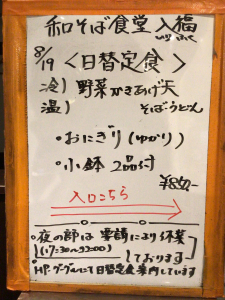 和そば食堂 入福
8/19 <日替定食>
冷) 野菜かきあげ天
温) そば・うどん
・おにぎり(ゆかり)
・小鉢 2品付
¥850-
入口こちら
○夜の部は 要請により休業
(17:30~22:00) しております
○HP・グーグルにて日替定食案内しています